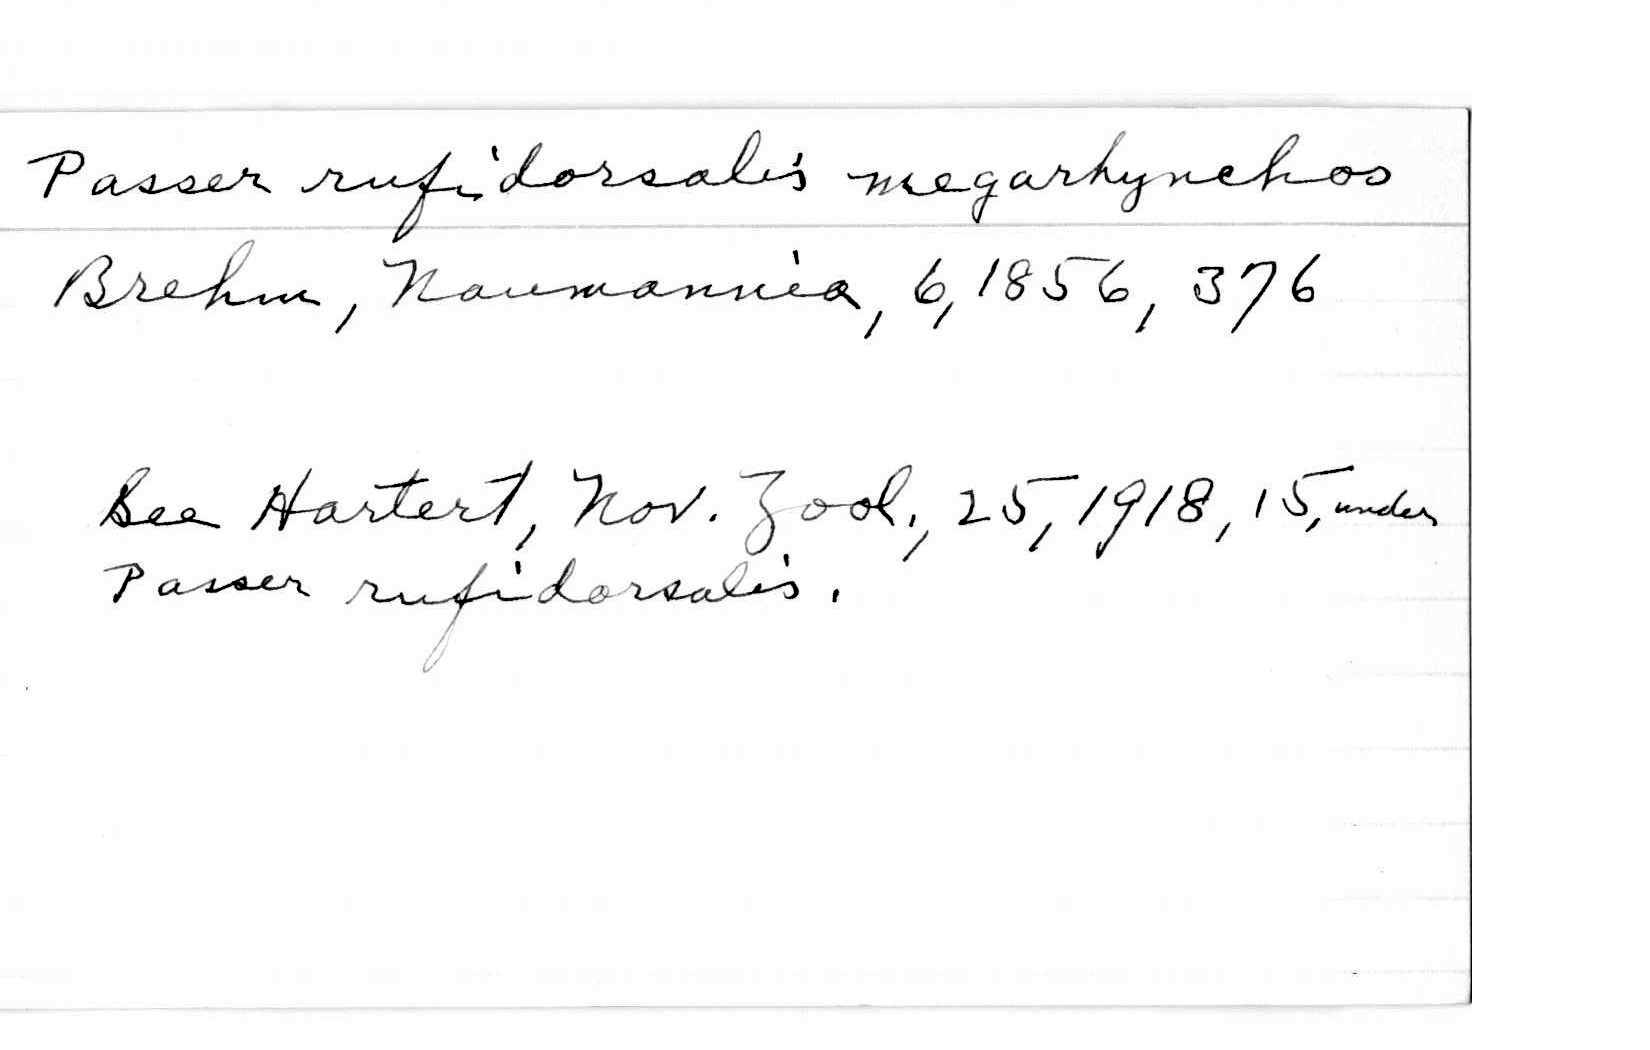 Passer rufidorsalis megarhynchos
Brehm, Naumannia, 6, 1856, 376
See Hartert, Nov. Zool., 25, 1918, 15, under
Passer rufidorsalis.